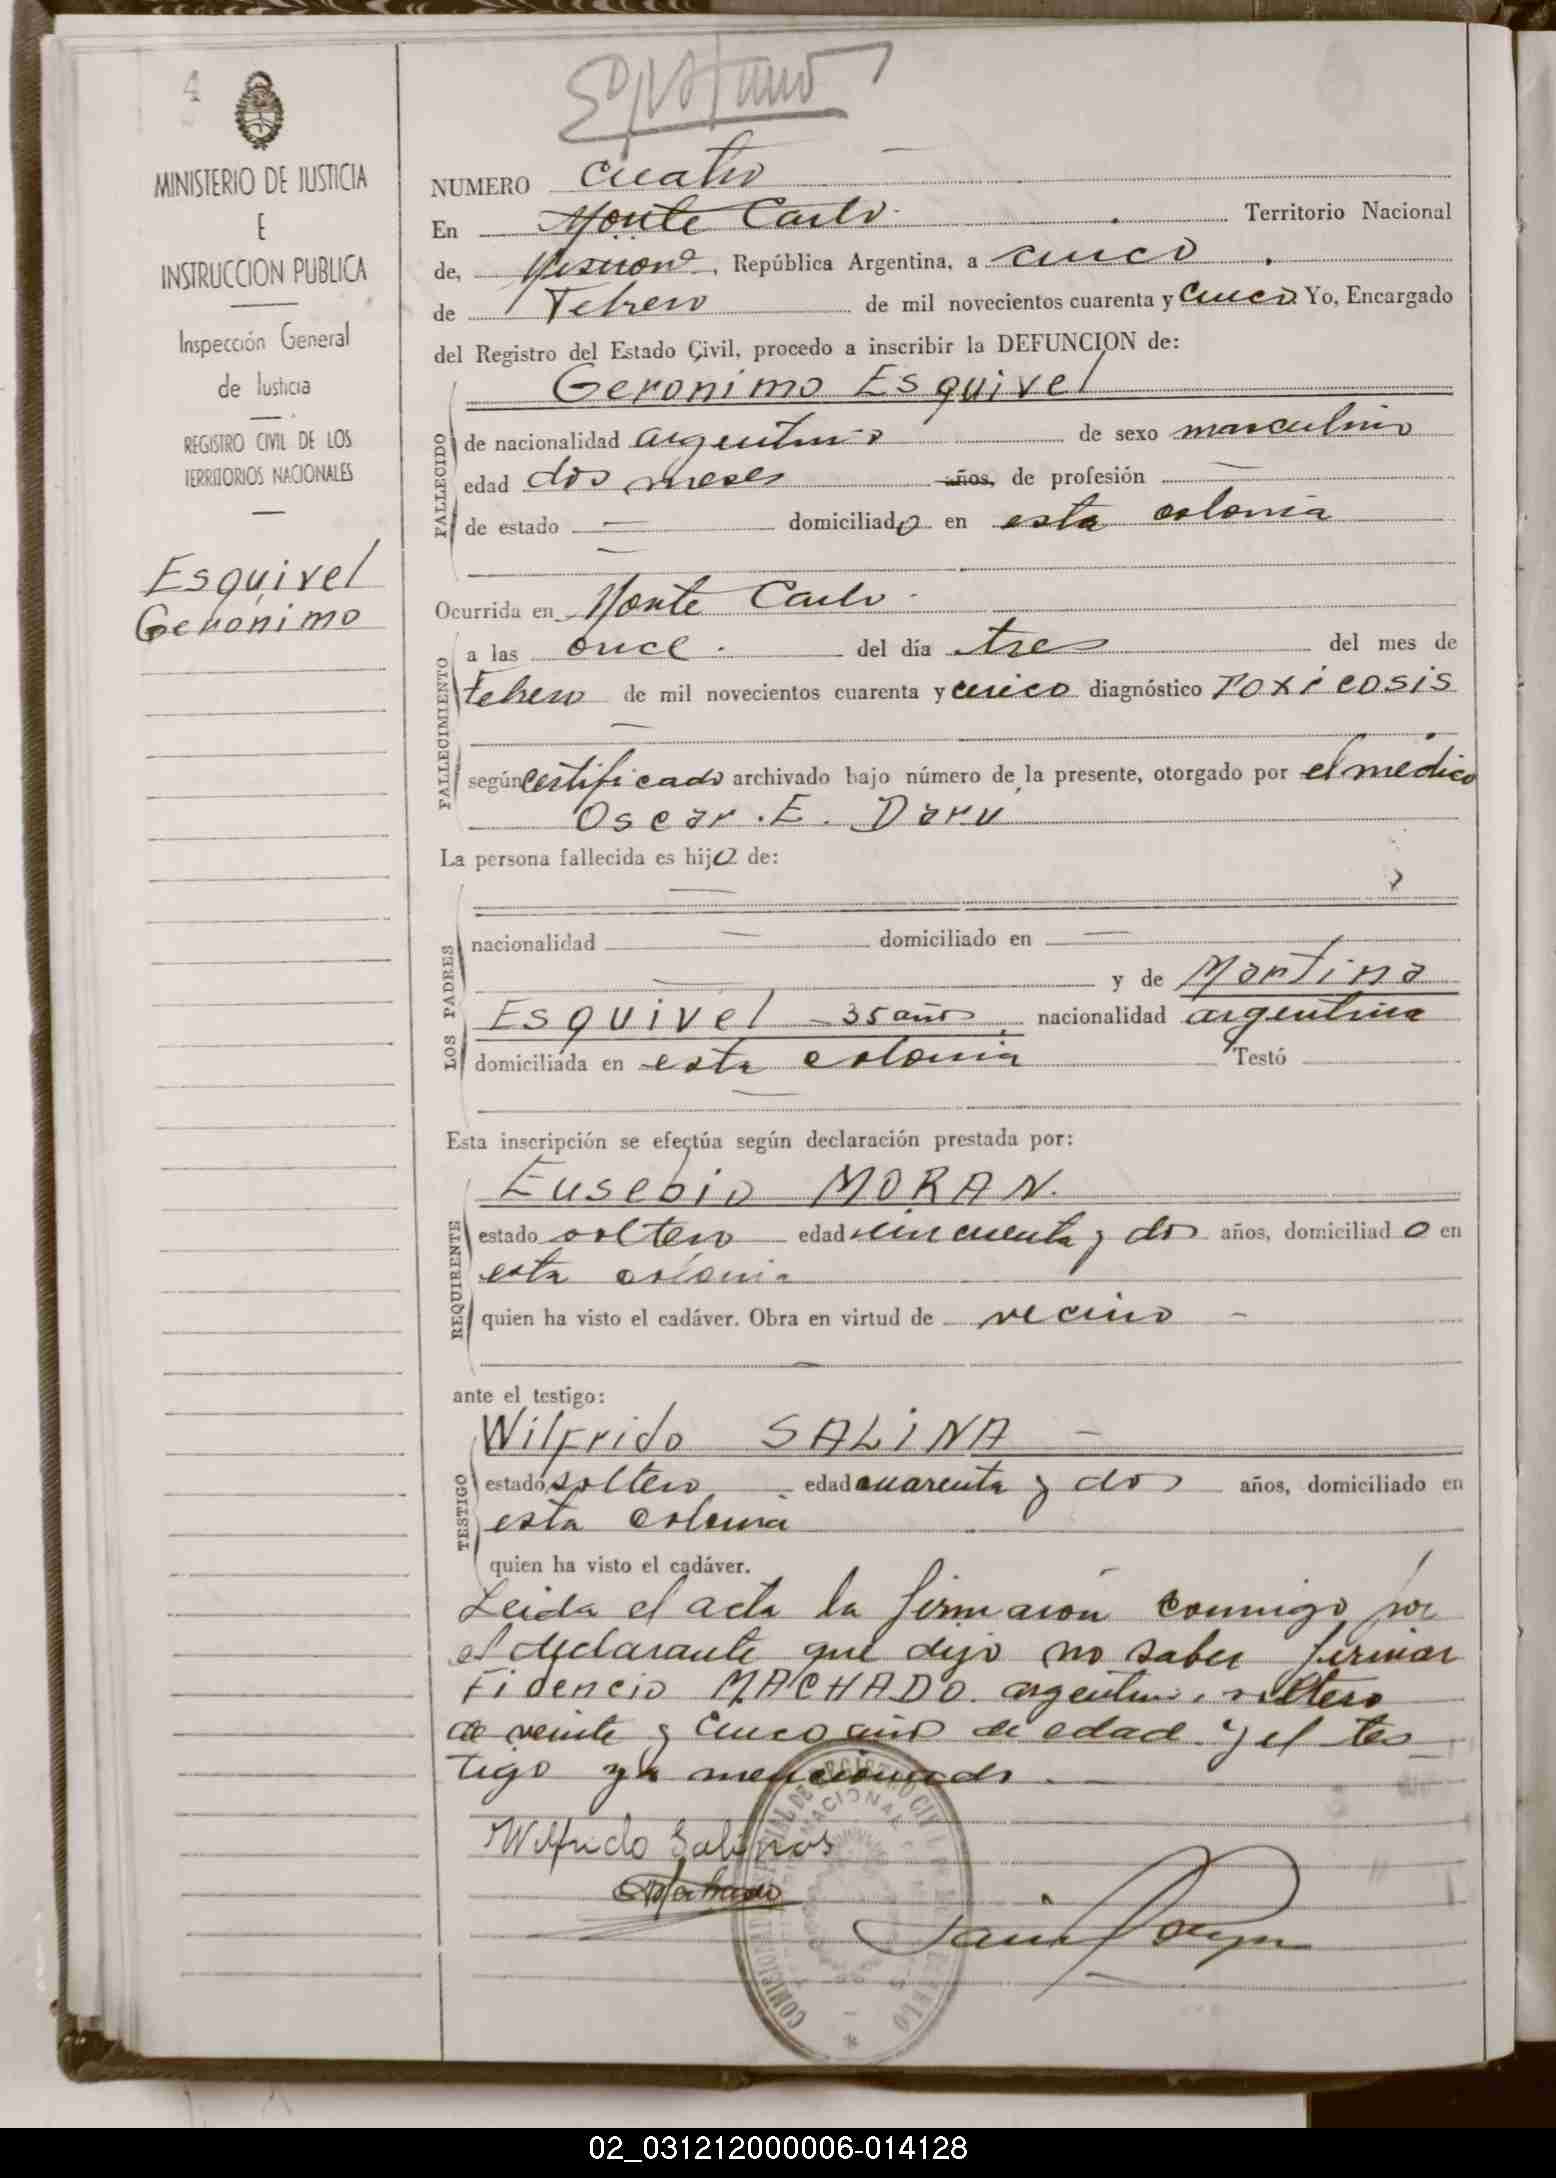 4
MINISTERIO DE JUSTICIA
E
INSTRUCCION PUBLICA
Inspección General
de Justicia
REGISTRO CIVIL DE LOS
TERRITORIOS NACIONALES
Esquivel
Gerónimo
NUMERO cuatro
En Monte Carlo Territorio Nacional
de, Misiones, República Argentina, a cinco
de Febrero de mil novecientos cuarenta y cinco Yo, Encargado
del Registro del Estado Civil, procedo a inscribir la DEFUNCION de:
Geronimo Esquivel
FALLECIDO
de nacionalidad argentino de sexo masculino
edad dos meses años, de profesión —
de estado — domiciliado en esta colonia
—
Ocurrida en Monte Carlo
FALLECIMIENTO
a las once del día tres del mes de
Febrero de mil novecientos cuarenta y cinco diagnóstico Toxicosis
—
según certificado archivado bajo número de la presente, otorgado por el médico
Oscar E. Daru
La persona fallecida es hijo de:
LOS PADRES
—
nacionalidad — domiciliado en —
— y de Martina
Esquivel – 35 años, nacionalidad argentina
domiciliada en esta colonia Testó
—
Esta inscripción se efectúa según declaración prestada por:
Eusebio MORAN.
REQUIRENTE
estado soltero edad cincuenta y dos años, domiciliado en
esta colonia
quien ha visto el cadáver. Obra en virtud de vecino –
ante el testigo:
Wilfrido SALINA –
TESTIGO
estado soltero edad cuarenta y dos años, domiciliado en
esta colonia
quien ha visto el cadáver.
Leida el acta la firmaron conmigo por
el declarante que dijo no saber firmar
Fidencio MACHADO. argentino, soltero
de veinte y cinco años de edad y el tes
tigo ya mencionado. –
Wilfrido Salinas
02_031212000006-014128